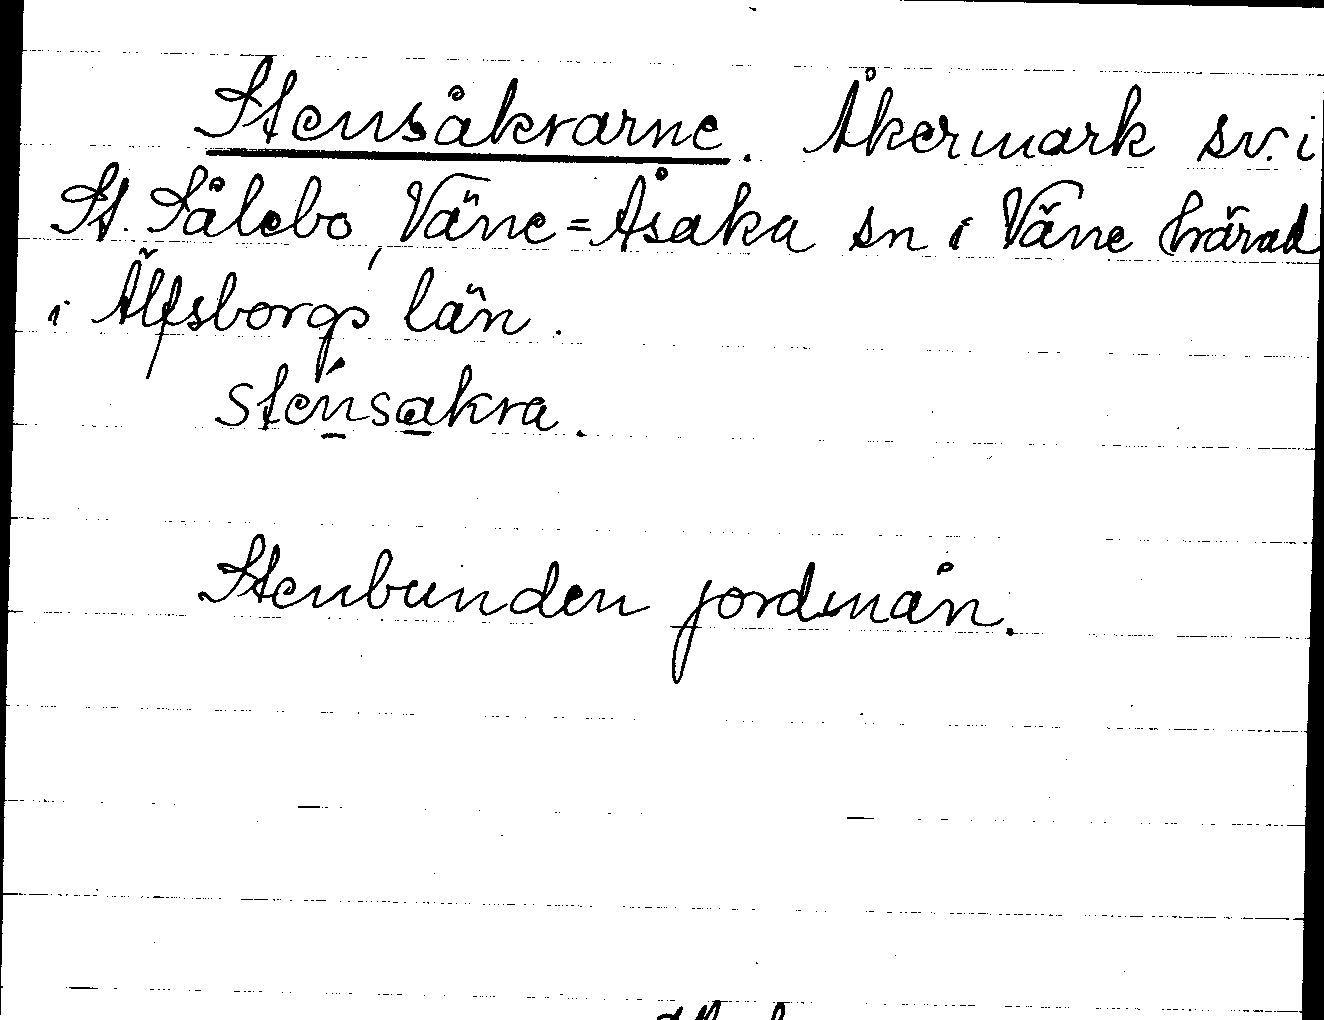 Stensåkrarne. Åkermark sv. i
St. Sålebo, Väne=Åsaka sn i Väne härad
i Älfsborgs län.
stensakra.
Stenbunden jordmån.